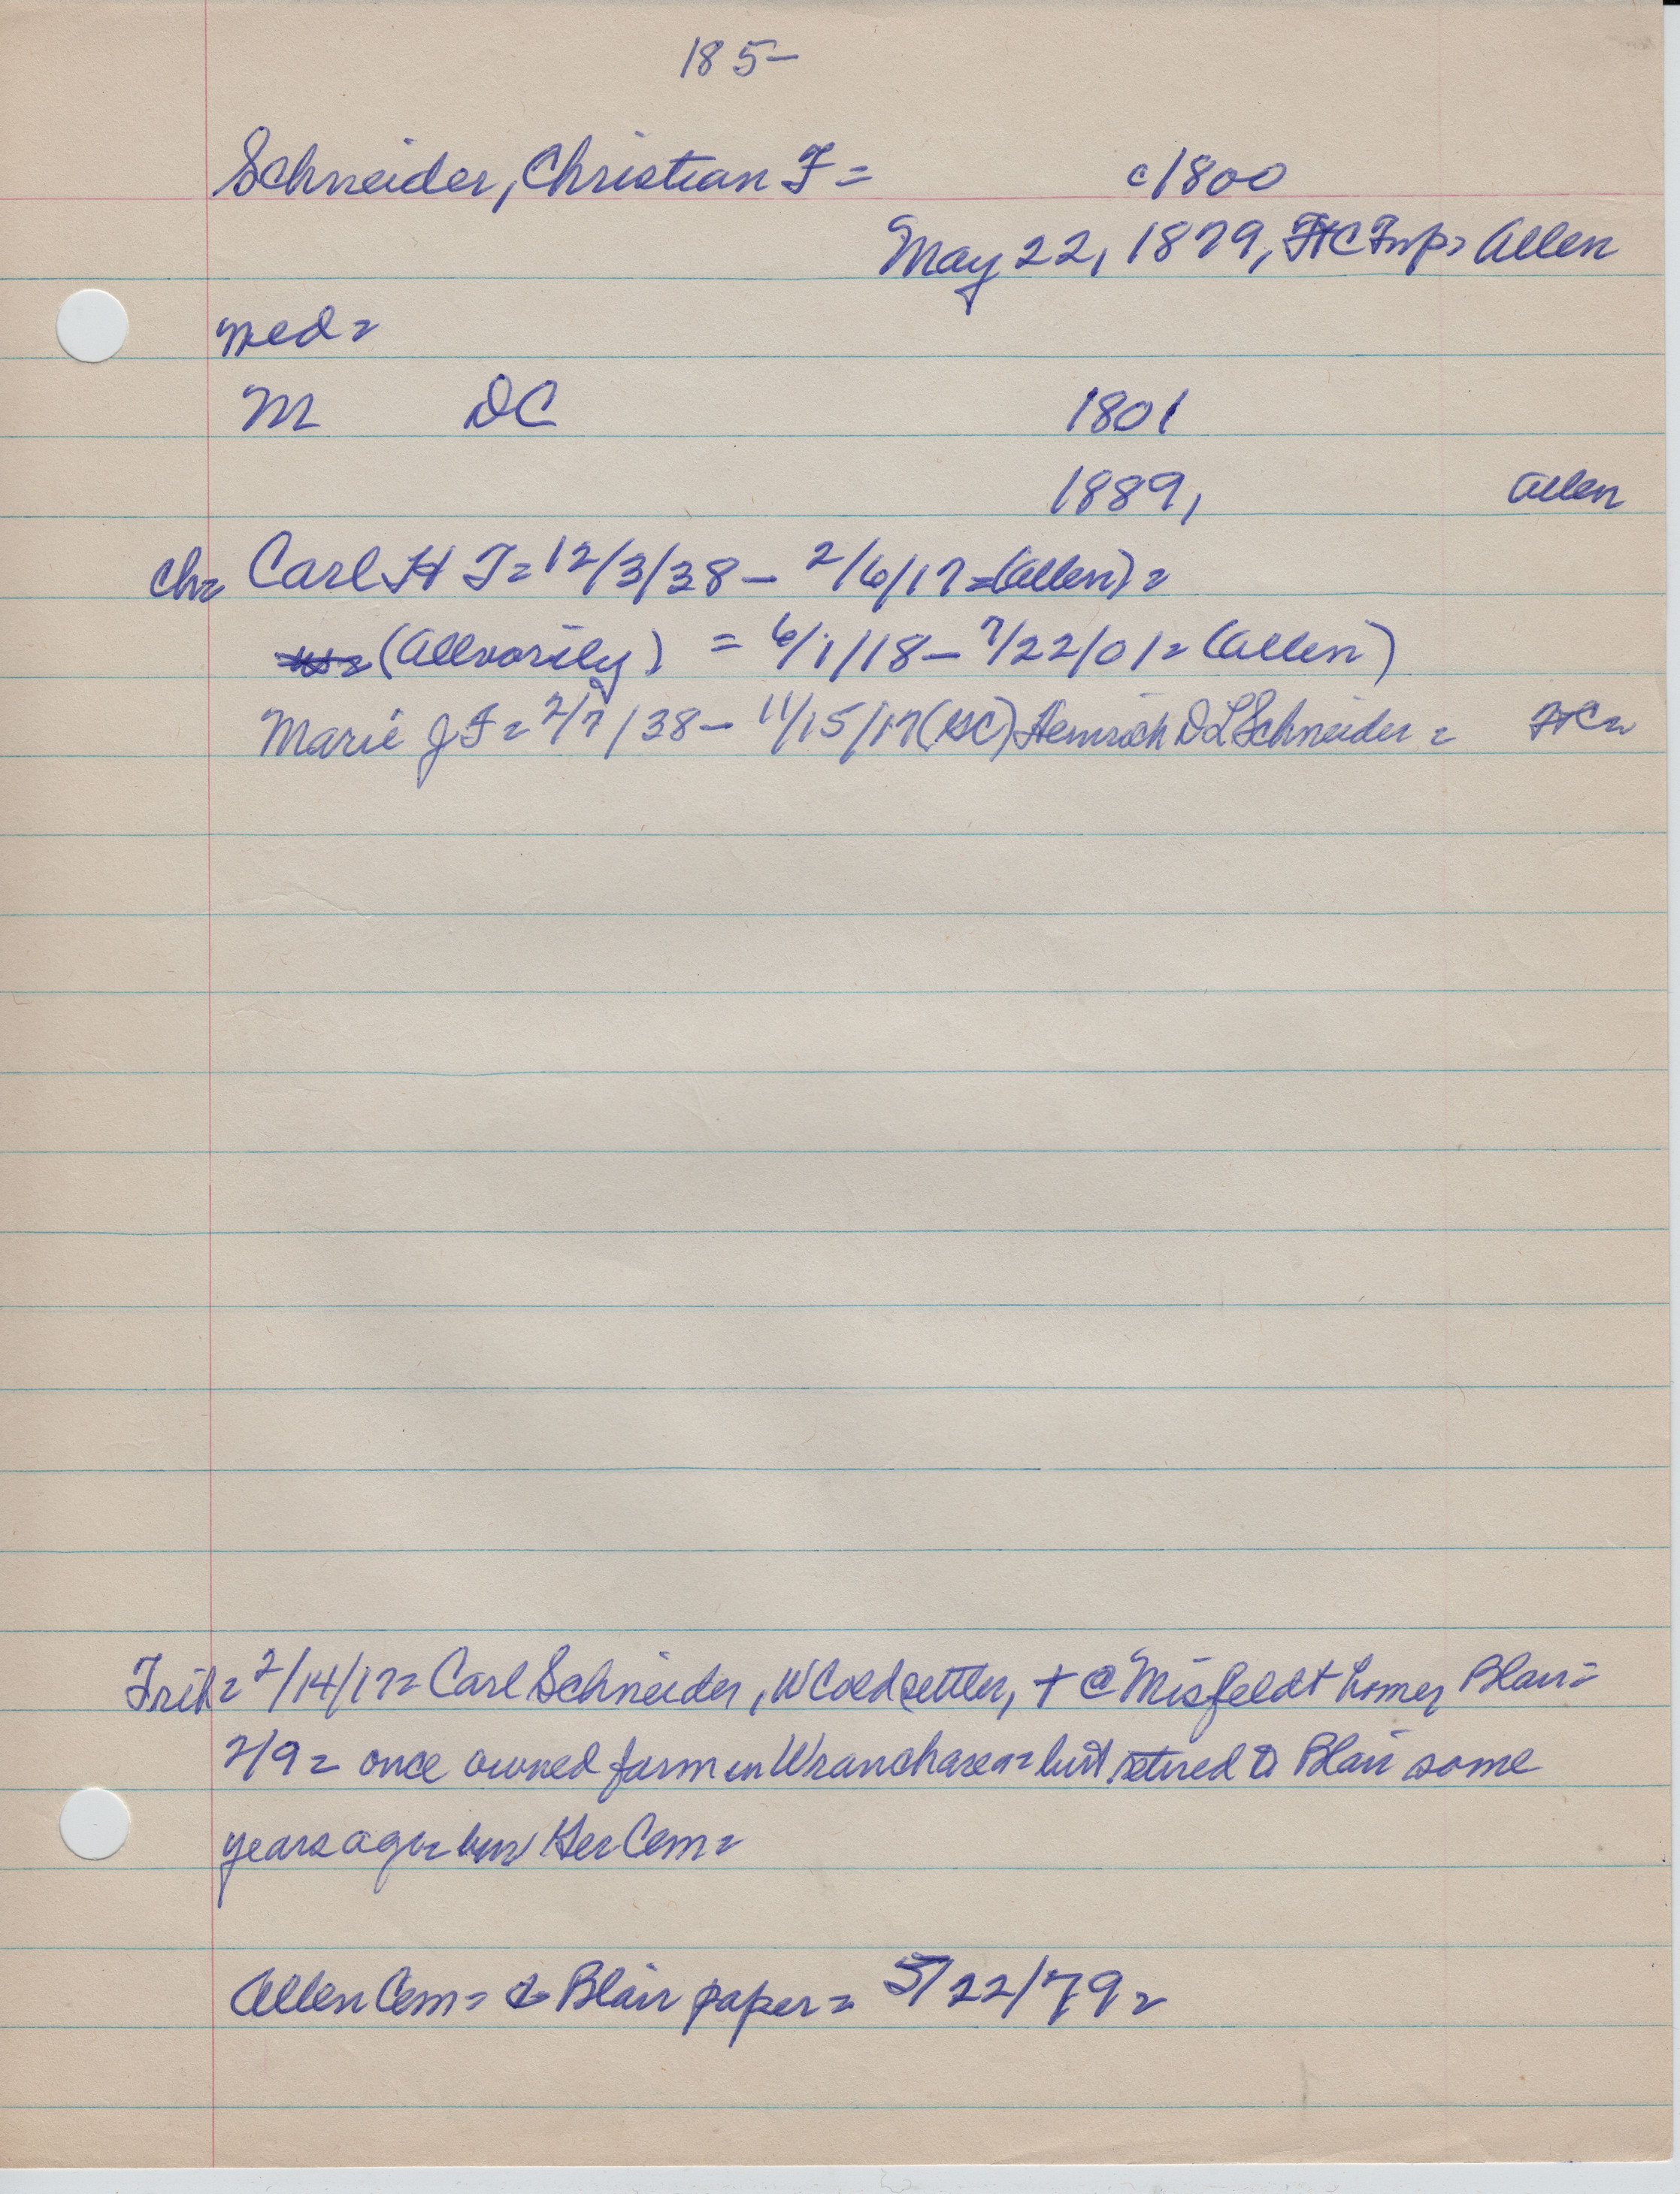 185-
Schneider, Christian F = c1800
May 22, 1879, FtC Twp= Allen
med=
M DC 1801
1889, Allen
ch= Carl H F= 12/3/38 - 2/6/17 = (Allen) =
(Allvorsily) = 6/1/18 - 7/22/01 = (Allen)
Marie J F = 2/7/38 - 11/15/17 (KC) Heinrich D L Schneider = FtC=
Trib= 2/14/17= Carl Schneider, W C old settler, + C Misfeldt home, Blair=
2/9 = once owned farm in area = but retired to Blair some
years ago= Her Cem=
Allen Cem = & Blair paper = 5/22/79 =